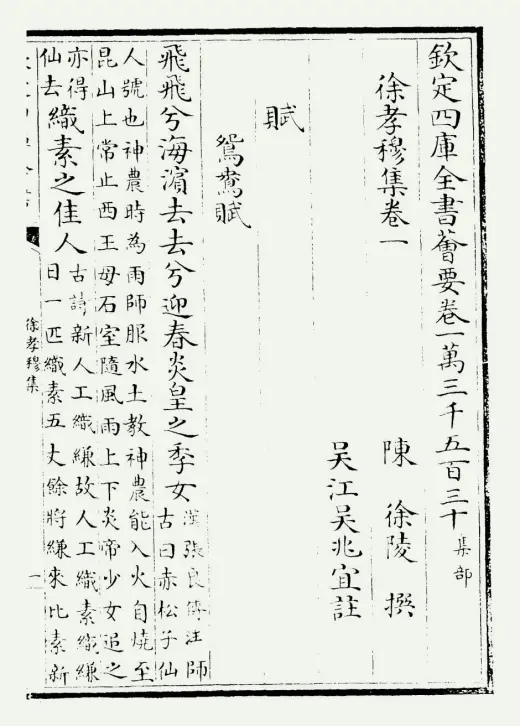 欽定四庫全書薈要卷一萬三千五百三十 集部
徐孝穆集卷一
陳 徐陵 撰
吳江吳兆宜註
賦
鴛鴦賦
飛飛兮海濱去去兮迎春炎皇之季女漢張良傳注師
古曰赤松子仙
人號也神農時為雨師服水土教神農能入火自燒至
昆山上常止西王母石室隨風雨上下炎帝少女追之
亦得
仙去織素之佳人古詩新人工織縑故人工織素織縑
日一匹織素五丈餘將縑來比素新
徐孝穆集
一